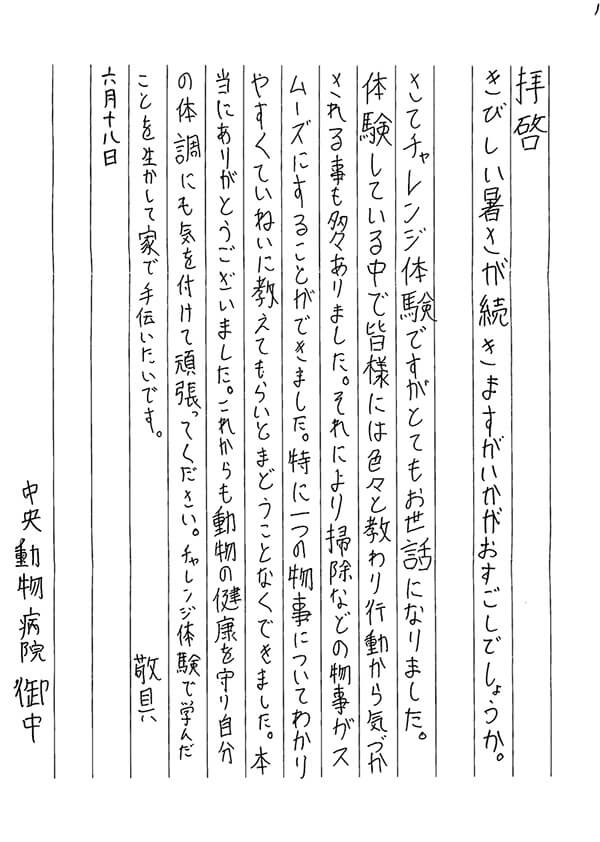 拝啓
きびしい暑さが続きますがいかがおすごしでしょうか。
さてチャレンジ体験ですがとてもお世話になりました。
体験している中で皆様には色々と教わり行動から気づか
される事も多々ありました。それにより掃除などの物事がス
ムーズにすることができました。特に一つの物事についてわかり
やすくていねいに教えてもらいとまどうことなくできました。本
当にありがとうございました。これからも動物の健康を守り自分
の体調にも気を付けて頑張ってください。チャレンジ体験で学んだ
ことを生かして家で手伝いたいです。 敬具
六月十八日
中央動物病院 御中